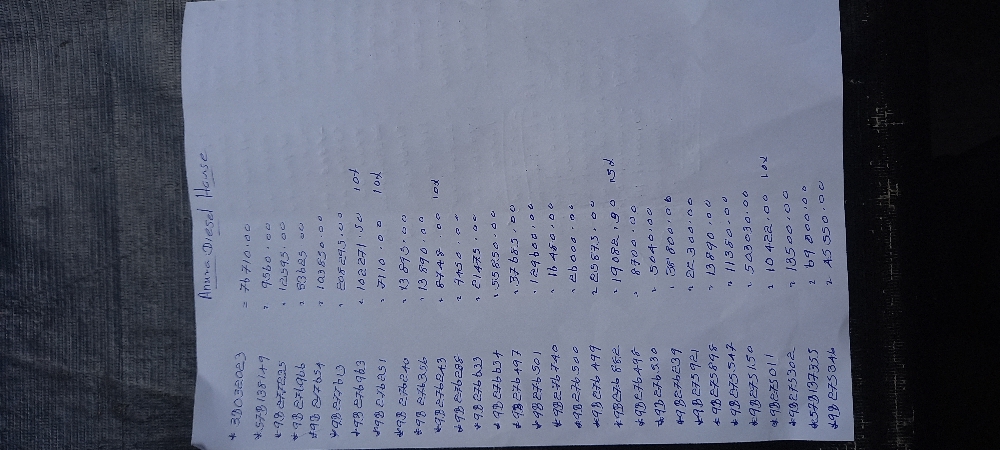 Anura Diesel House
* 3BD032023 = 76710.00
* 57B138149 " 9560.00
* 9B277235 " 12595.00
* 9B271966 " 93625.00
* 9B277654 " 103850.00
* 9B277613 " 208293.00
* 9B276963 " 102271.50 10%
* 9B276251 " 7110.00 10%
* 9B276240 " 13895.00
* 9B276256 " 13890.00
* 9B276243 " 8748.00 10%
* 9B276288 " 7430.00
* 9B276633 " 21475.00
* 9B276634 " 55850.00
* 9B276497 " 37685.00
* 9B276501 " 129600.00
* 9B276740 " 16480.00
* 9B276500 " 26000.00
* 9B276499 " 25875.00
* 9B276882 " 19082.50 15%
* 9B276498 " 8700.00
* 9B276530 " 5040.00
* 9B276239 " 58800.00
* 9B275921 " 22300.00
* 9B275898 " 13890.00
* 9B275547 " 11380.00
* 9B275150 " 503030.00
* 9B275011 " 10422.00 10%
* 9B275302 " 18500.00
* 57B137355 " 69800.00
* 9B275346 " 45550.00